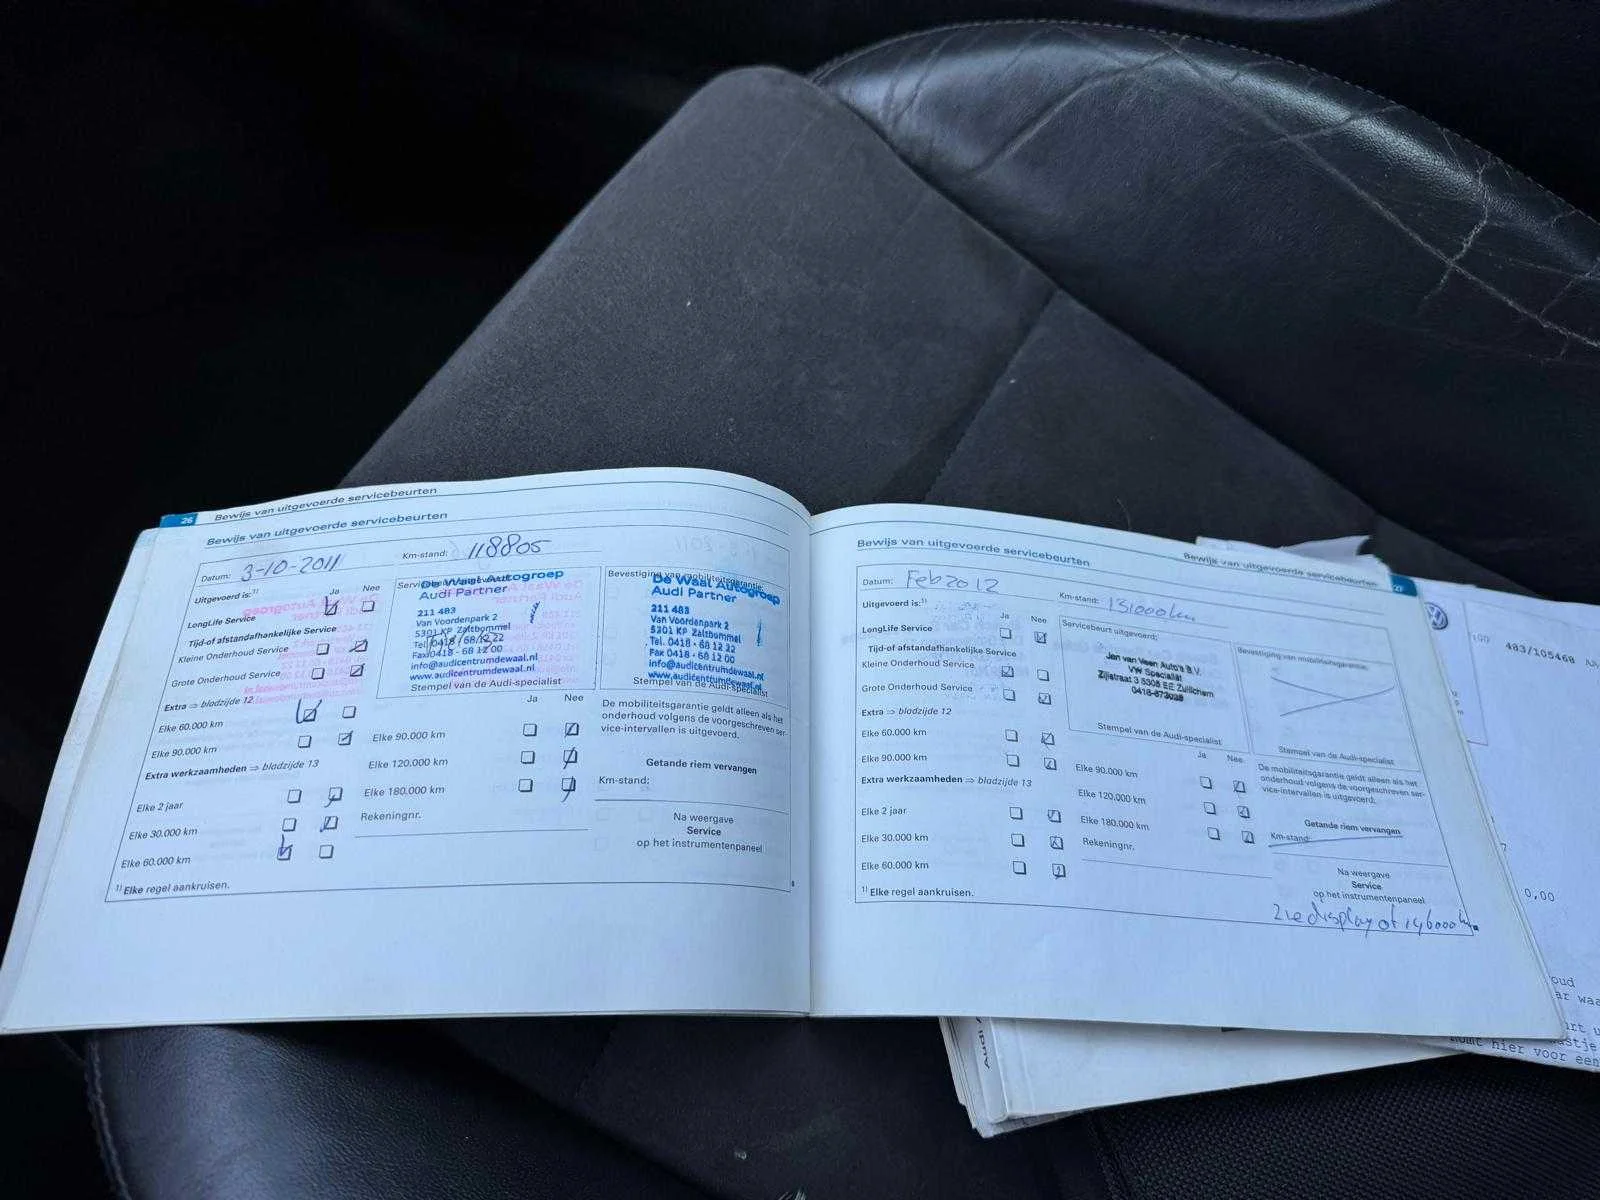 26 Bewijs van uitgevoerde servicebeurten
Bewijs van uitgevoerde servicebeurten
Datum: 3-10-2011
Km-stand: 118805
Uitgevoerd is:1)
Ja Nee
LongLife Service
Tijd-of afstandafhankelijke Service
Kleine Onderhoud Service
Grote Onderhoud Service
Extra ⇒ bladzijde 12
Elke 60.000 km
Elke 90.000 km
Extra werkzaamheden ⇒ bladzijde 13
Elke 2 jaar
Elke 30.000 km
Elke 60.000 km
1) Elke regel aankruisen.
De Waal Autogroep
Audi Partner
211 483
Van Voordenpark 2
5301 KP Zaltbommel
Tel. 0418 - 68 12 22
Fax 0418 - 68 12 00
info@audicentrumdewaal.nl
www.audicentrumdewaal.nl
Stempel van de Audi-specialist
Ja Nee
Elke 90.000 km
Elke 120.000 km
Elke 180.000 km
Rekeningnr.
Bevestiging van mobiliteitsgarantie:
De Waal Autogroep
Audi Partner
211 483
Van Voordenpark 2
5301 KP Zaltbommel
Tel. 0418 - 68 12 22
Fax 0418 - 68 12 00
info@audicentrumdewaal.nl
www.audicentrumdewaal.nl
Stempel van de Audi-specialist
De mobiliteitsgarantie geldt alleen als het
onderhoud volgens de voorgeschreven ser-
vice-intervallen is uitgevoerd.
Getande riem vervangen
Km-stand:
Na weergave
Service
op het instrumentenpaneel
Bewijs van uitgevoerde servicebeurten 27
Bewijs van uitgevoerde servicebeurten
Datum: Feb 2012
Km-stand: 131000km
Uitgevoerd is:1)
Ja Nee
LongLife Service
Tijd-of afstandafhankelijke Service
Kleine Onderhoud Service
Grote Onderhoud Service
Extra ⇒ bladzijde 12
Elke 60.000 km
Elke 90.000 km
Extra werkzaamheden ⇒ bladzijde 13
Elke 2 jaar
Elke 30.000 km
Elke 60.000 km
1) Elke regel aankruisen.
Servicebeurt uitgevoerd:
Jan van Veen Auto's B.V.
VW Specialist
Zijlstraat 3 5305 EE Zuilichem
0418-673028
Stempel van de Audi-specialist
Ja Nee
Elke 90.000 km
Elke 120.000 km
Elke 180.000 km
Rekeningnr.
Bevestiging van mobiliteitsgarantie:
Stempel van de Audi-specialist
De mobiliteitsgarantie geldt alleen als het
onderhoud volgens de voorgeschreven ser-
vice-intervallen is uitgevoerd.
Getande riem vervangen
Km-stand:
Na weergave
Service
op het instrumentenpaneel
zie display of 146000km
483/105468
0,00
oud
ar waa
komt hier voor een
Audi